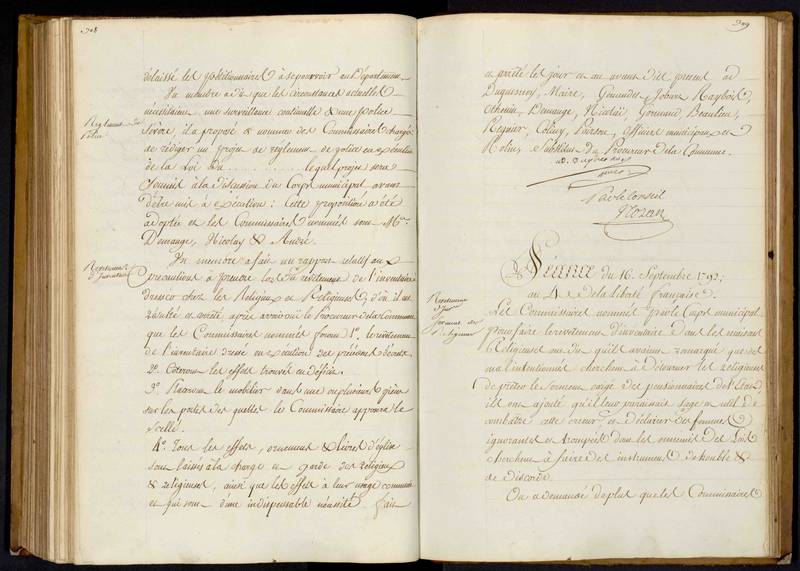 délaissé les pétitionnaires à se pourvoir au Département.
Un membre a dit que les circonstances actuelles
nécessitaient une surveillance continuelle & une police
sévère, il a proposé de nommer des Commissaires chargés
de rédiger un projet de règlement de police en exécution
de la Loi du .......... lequel projet sera
soumis à la discussion du Corps municipal avant
d'être mis à exécution : Cette proposition a été
adoptée et les Commissaires nommés sont Mrs.
Demange, Nicolay & André.
Règlement de
Police
Un membre a fait un rapport relatif aux
précautions à prendre lors du revêtement de l'inventaire
dressé chez les Religieux et Religieuses, d'où il est
résulté et arrêté, après avoir ouï le Procureur de la Commune
que les Commissaires nommés feront 1°. le revêtement
de l'inventaire dressé en exécution des précédens décrets.
2°. Coteront les effets trouvés en déficit.
3°. Placeront le mobilier dans une ou plusieurs pièces
sur les portes desquelles les Commissaires apposeront le
scellé.
4°. Tous les effets, ornemens & livres d'église
sont laissés à la charge et garde des religieux
& religieuses, ainsi que les effets à leur usage commun
et qui sont d'une indispensable nécessité. fait
399
et arrêté les jour et an avant dits présens
Duquesnoy, Maire,
Othenin, Demange, Nicolaï, Germain, Beaulieu,
Regnier, Coliny, Poirson, Officiers municipaux et
Rolin, Substitut du Procureur de la Commune.
Par le Conseil
Séance du 16. Septembre 1792,
an 4 de la liberté française.
Les Commissaires nommés par le Corps municipal
pour faire le revêtement d'inventaire dans les maisons
Religieuses ont dit qu'ils avaient remarqué que des
mal intentionnés cherchent à détourner les religieuses
de prêter le serment exigé des pensionnaires de l'Etat,
ils ont ajouté qu'il leur paraissait sage et utile de
combattre cette erreur et d'éclairer des femmes
ignorantes et trompées dont les ennemis des Loix
cherchent à faire des instrumens de trouble &
de discorde.
On a demandé de plus que les Commissaires